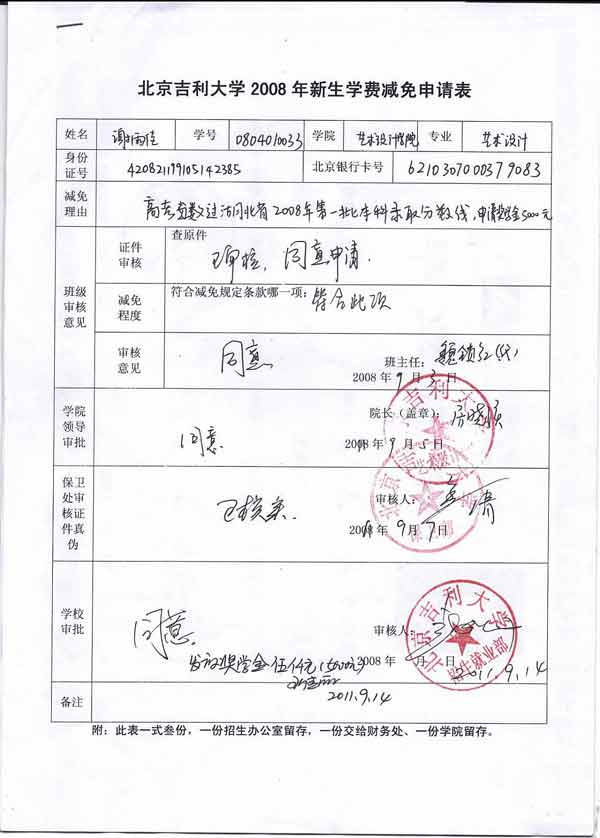 北京吉利大学 2008 年新生学费减免申请表
姓名 谢雨佳 学号 0804010033 学院 艺术设计学院 专业 艺术设计
身份证号 420821199105142385 北京银行卡号 6210307000379083
减免理由 高考分数过湖北省2008年第一批本科录取分数线,申请奖金5000元
班级审核意见
证件审核 查原件
已审核,同意申请.
减免程度 符合减免规定条款哪一项: 符合此项
审核意见 同意 班主任: 魏锁红(代)
2008年9月3日
学院领导审批 同意. 院长(盖章):
2008年9月5日
保卫处审核证件真伪 已核实. 审核人:
2008年9月7日
学校审批 同意. 审核人:
发放奖学金伍仟元(5000元) 2008年 月 日 2011.9.14
2011.9.14
备注
附:此表一式叁份,一份招生办公室留存,一份交给财务处、一份学院留存。
北京吉利大学
艺术设计
北京吉利大学
保卫部
北京吉利大学
招生就业部